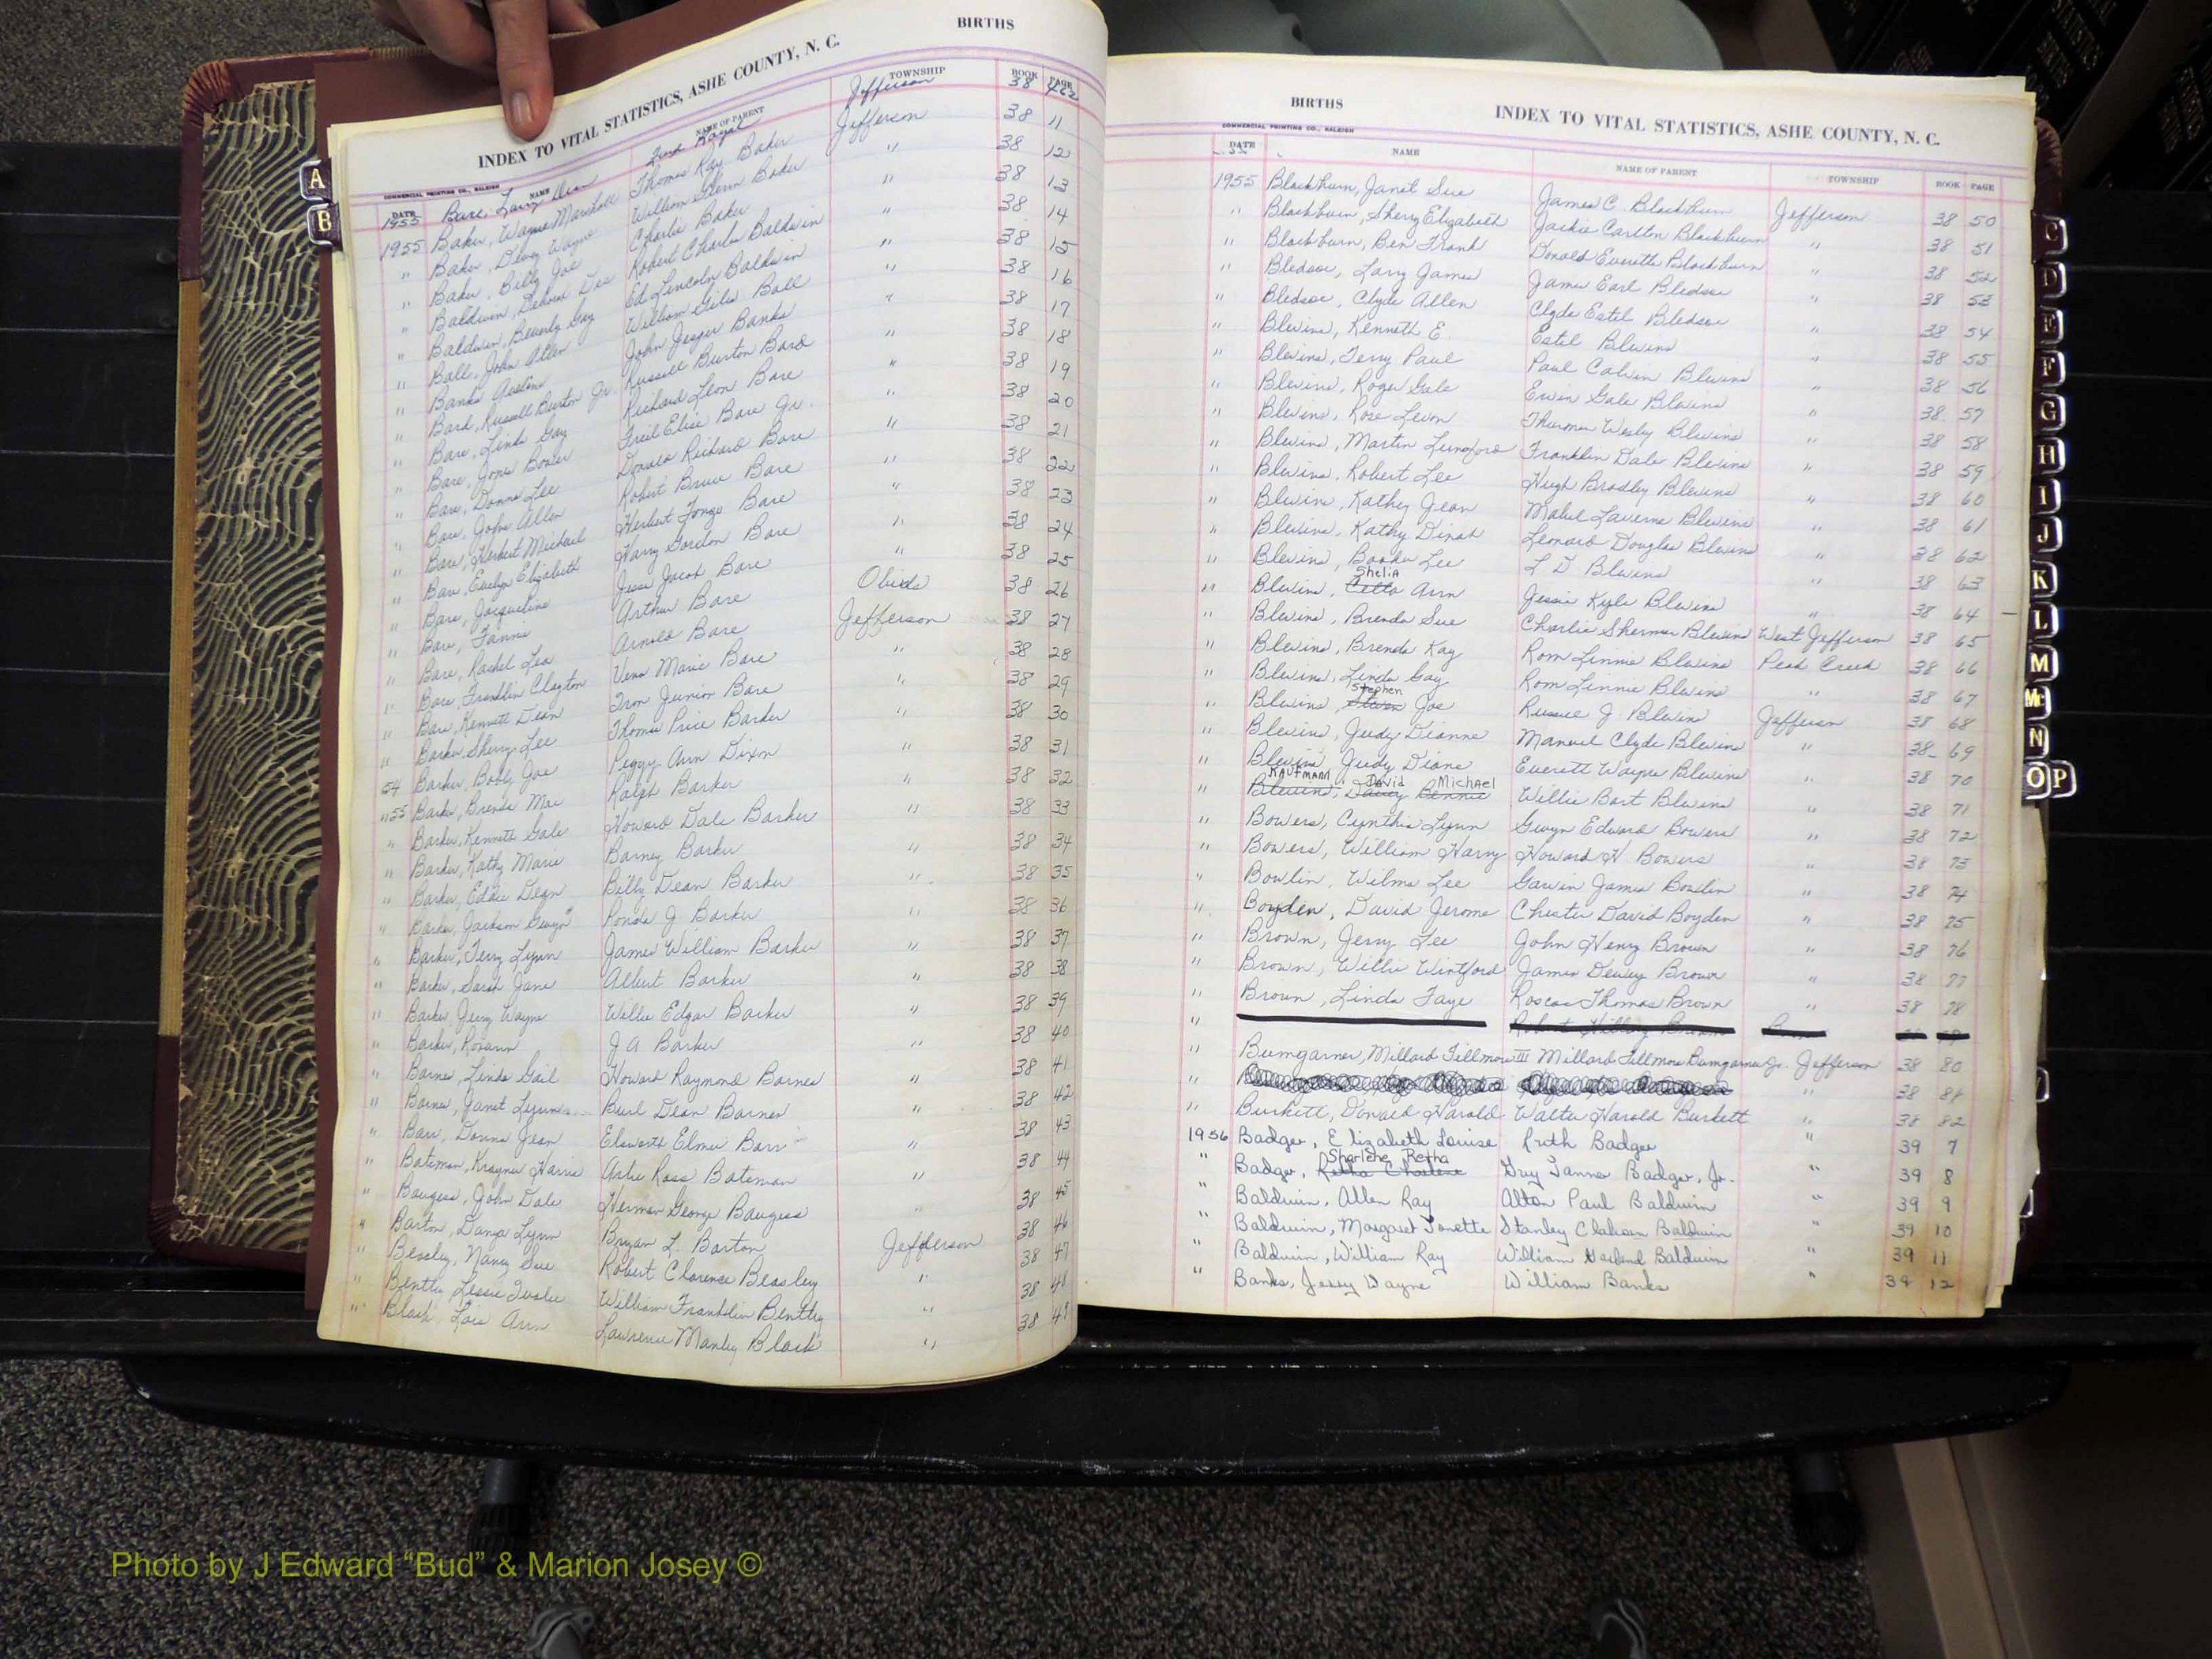 BIRTHS
INDEX TO VITAL STATISTICS, ASHE COUNTY, N. C.
COMMERCIAL PRINTING CO., RALEIGH
DATE NAME NAME OF PARENT TOWNSHIP BOOK PAGE
1955 Bare, Larry Dean Jefferson 38 462
1955 Baker, Wayne Marshall Thomas Ray Baker Jefferson 38 11
" Baker, Dewey Wayne William Glenn Baker " 38 12
" Baker, Billy Joe Charlie Baker " 38 13
" Baldwin, Deborah Robert Charles Baldwin " 38 14
" Baldwin, Beverly Gay Ed Lincoln Baldwin " 38 15
" Ball, John Allen William Giles Ball " 38 16
" Banks John Banks " 38 17
" Bard, Russell Burton Jr. Russell Burton Bard " 38 18
" Bare, Linda Gay Richard Leon Bare " 38 19
" Bare, Jones Bower Bare Jr. " 38 20
" Bare, Donna Lee Donald Richard Bare " 38 21
" Bare, John Allen Robert Bruce Bare " 38 22
" Bare, Herbert Michael Herbert Bare " 38 23
" Bare, Evelyn Elizabeth Harry Gordon Bare " 38 24
" Bare, Jacqueline Jesse Jacob Bare " 38 25
" Bare, Fannie Arthur Bare 38 26
" Bare, Rachel Lea Arnold Bare Jefferson 38 27
" Bare, Franklin Clayton Vena Marie Bare " 38 28
" Bare, Kenneth Dean Junior Bare " 38 29
" Barker Sherry Lee Thomas Price Barker " 38 30
54 Barker, Bobby Joe Peggy Ann Dixon " 38 31
"55 Barker, Brenda Mae Ralph Barker " 38 32
" Barker, Kenneth Gale Howard Dale Barker " 38 33
" Barker, Kathy Marie Barney Barker " 38 34
" Barker, Eddie Dean Billy Dean Barker " 38 35
" Barker, Jackson Gwyn Ronda J Barker " 38 36
" Barker, Terry Lynn James William Barker " 38 37
" Barker, Sarah Jane Albert Barker " 38 38
" Barker Jerry Wayne Willie Edgar Barker " 38 39
" Barker, J A Barker 38 40
" Barnes, Linda Gail Howard Raymond Barnes " 38 41
" Barnes, Janet Lynne Burl Dean Barnes " 38 42
" Barr, Donna Jean Elsworth Elmer Barr " 38 43
" Bateman, Harris Ross Bateman " 38 44
" Baugess, John Dale Herman George Baugess " 38 45
" Barton, Danya Lynn Bryan L. Barton Jefferson 38 46
" Beasley, Nancy Sue Robert Clarence Beasley " 38 47
" Bentley Lessie William Franklin Bentley " 38 48
" Black Lois Ann Lawrence Manley Black " 38 49
A
B
BIRTHS
INDEX TO VITAL STATISTICS, ASHE COUNTY, N. C.
COMMERCIAL PRINTING CO., RALEIGH
DATE NAME NAME OF PARENT TOWNSHIP BOOK PAGE
1955 Blackburn, Janet Sue James C. Blackburn Jefferson 38 50
" Blackburn, Sherry Elizabeth Jackie Carlton Blackburn " 38 51
" Blackburn, Ben Frank Donald Everette Blackburn " 38 52
" Bledsoe, Larry James James Earl Bledsoe " 38 53
" Bledsoe, Clyde Allen Clyde Estel Bledsoe " 38 54
" Blevins, Kenneth E. Estel Blevins " 38 55
" Blevins, Terry Paul Paul Calvin Blevins " 38 56
" Blevins, Roger Gale Ervin Gale Blevins " 38 57
" Blevins, Rose Levon Thurman Wesley Blevins " 38 58
" Blevins, Martin Lunsford Franklin Dale Blevins " 38 59
" Blevins, Robert Lee Hugh Bradley Blevins " 38 60
" Blevins, Kathey Jean Mabel Laverne Blevins " 38 61
" Blevins, Kathy Dinah Leonard Douglas Blevins " 38 62
" Blevins, Booker Lee L D Blevins " 38 63
Shelia
" Blevins, Ann Jessie Kyle Blevins " 38 64
" Blevins, Brenda Sue Charlie Sherman Blevins West Jefferson 38 65
" Blevins, Brenda Kay Rom Linnie Blevins Peak Creek 38 66
" Blevins, Linda Gay Rom Linnie Blevins " 38 67
Stephen
" Blevins, Steven Joe Russell J. Blevins Jefferson 38 68
" Blevins, Judy Dianne Manuel Clyde Blevins " 38 69
" Blevins, Judy Diane Everett Wayne Blevins " 38 70
KAUFMANN David Michael
" Blevins, Danny Bennie Willie Bart Blevins " 38 71
" Bowers, Cynthia Lynn Gwyn Edward Bowers " 38 72
" Bowers, William Harry Howard H Bowers " 38 73
" Bowlin, Wilma Lee Garvin James Bowlin " 38 74
" Boyden, David Jerome Chester David Boyden " 38 75
" Brown, Jerry Lee John Henry Brown " 38 76
" Brown, Willie Wintford James Dewey Brown " 38 77
" Brown, Linda Faye Roscoe Thomas Brown " 38 78
" Bumgarner, Millard Fillmore III Millard Fillmore Bumgarner Jr. Jefferson 38 80
" " 38 81
" Burkett, Donald Harold Walter Harold Burkett " 38 82
1956 Badger, Elizabeth Louise Ruth Badger " 39 7
Sharlene Retha
" Badger, Retha Charlene Guy Tanner Badger, Jr. " 39 8
" Baldwin, Allen Ray Alton Paul Baldwin " 39 9
" Baldwin, Margaret Jonette Stanley Claheen Baldwin " 39 10
" Baldwin, William Ray William Garland Baldwin " 39 11
" Banks, Jerry Wayne William Banks " 39 12
C
D
E
F
G
H
I
J
K
L
M
Mc
N
OP
Photo by J Edward “Bud” & Marion Josey ©